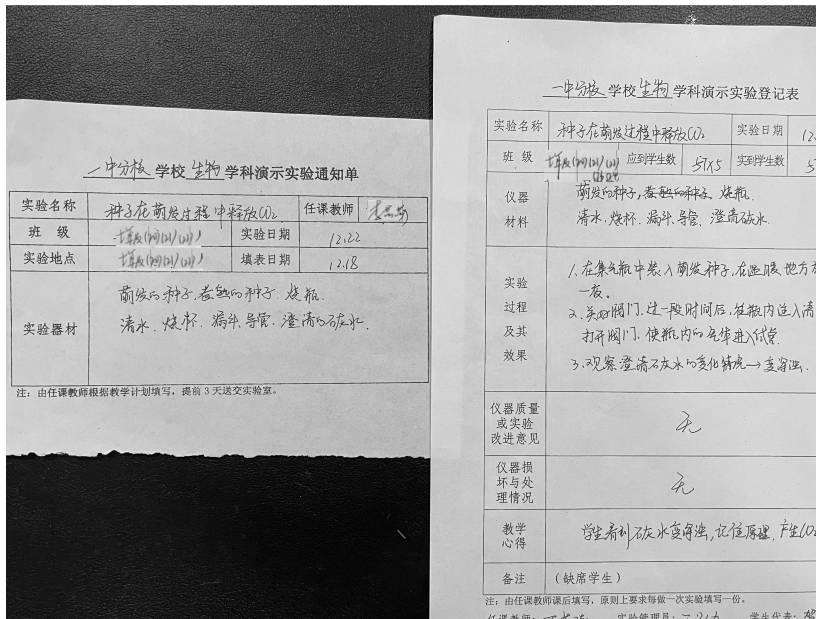 一中分校 学校 生物 学科演示实验通知单
实验名称 种子在萌发过程中释放CO₂ 任课教师
班 级 实验日期 12.22
实验地点 填表日期 12.18
实验器材
萌发的种子.煮熟的种子.烧瓶.
清水.烧杯.漏斗.导管.澄清的石灰水.
注：由任课教师根据教学计划填写，提前3天送交实验室。
一中分校 学校 生物 学科演示实验登记表
实验名称 种子在萌发过程中释放CO₂ 实验日期
班 级 应到学生数 57X5 实到学生数
仪器
材料
萌发的种子,煮熟的种子、烧瓶.
清水.烧杯.漏斗.导管.澄清石灰水.
实验
过程
及其
效果
1.在集气瓶中装入萌发种子,在温暖地方
一夜。
2.关好阀门,过一段时间后,往瓶内注入清
打开阀门,使瓶内的气体进入试管.
3.观察澄清石灰水的变化情况→变浑浊.
仪器质量
或实验
改进意见
无
仪器损
坏与处
理情况
无
教学
心得
学生看到石灰水变浑浊,记住原理.产生CO₂
备注 （缺席学生）
注：由任课教师课后填写，原则上要求每做一次实验填写一份。
任课教师： 实验管理员： 学生代表：